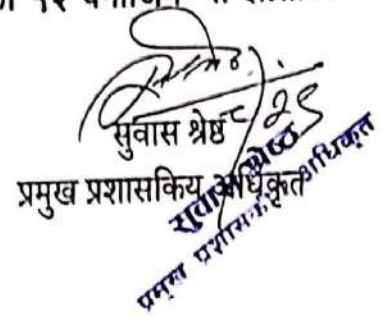 सुवास श्रेष्ठ
प्रमुख प्रशासकिय अधिकृत
सुवास श्रेष्ठ
प्रमुख प्रशासकीय अधिकृत